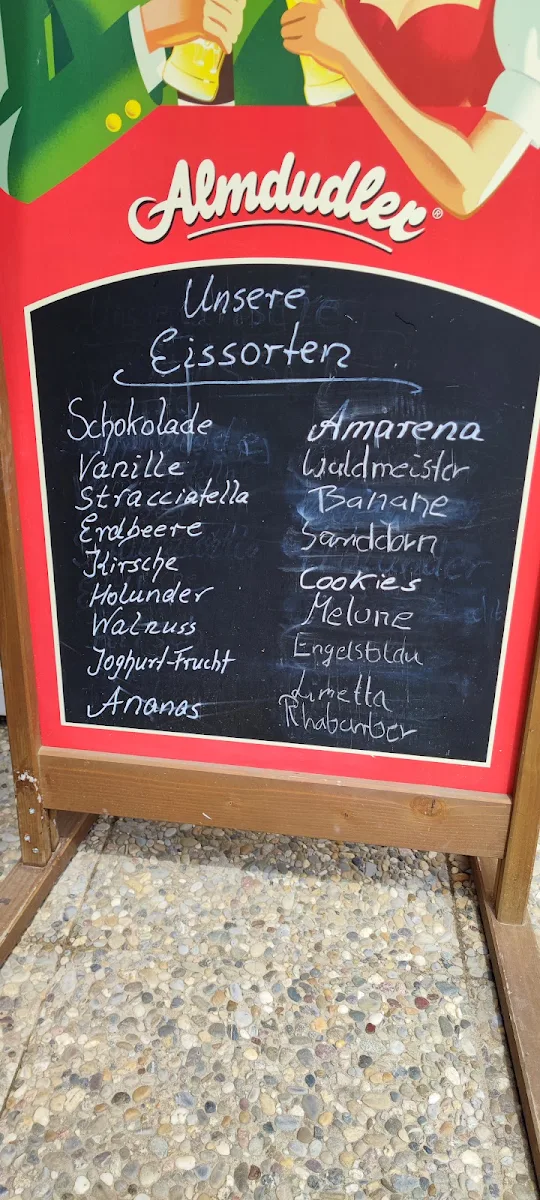 Almdudler®
Unsere
Eissorten
Schokolade
Vanille
Stracciatella
Erdbeere
Kirsche
Holunder
Walnuss
Joghurt-Frucht
Ananas
Amarena
Waldmeister
Banane
Sanddorn
Cookies
Melone
Engelsblau
Limetta
Rhabarber